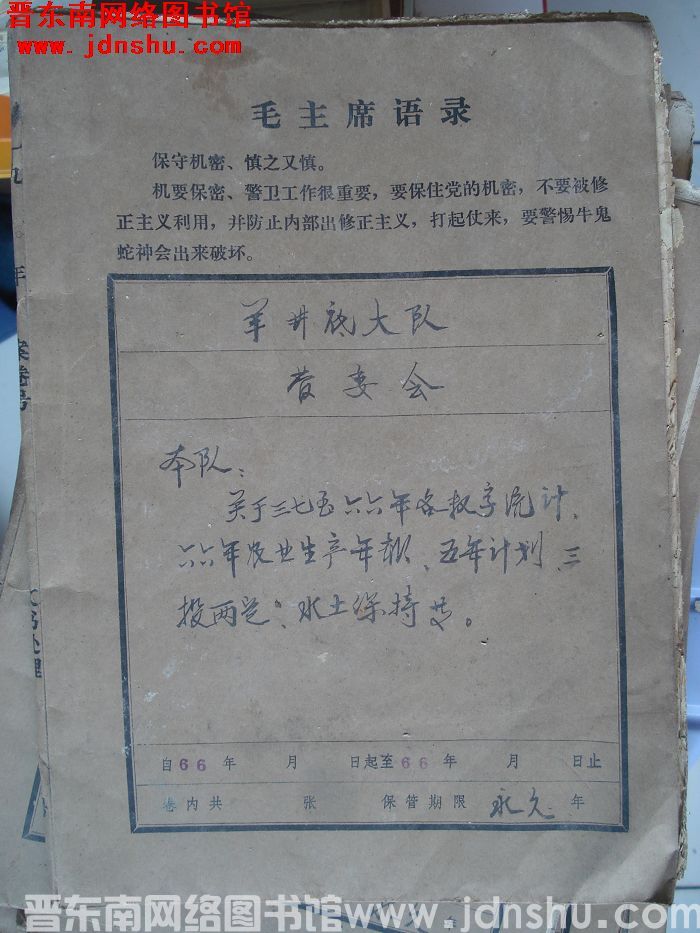 晋东南网络图书馆
www.jdnshu.com
毛主席语录
保守机密、慎之又慎。
机要保密、警卫工作很重要，要保住党的机密，不要被修
正主义利用，并防止内部出修正主义，打起仗来，要警惕牛鬼
蛇神会出来破坏。
羊井底大队
管委会
本队：
关于三七五六六年各数字统计、
六六年农业生产年报、五年计划、三
投两定、水土保持
自66年 月 日起至66年 月 日止
卷内共 张 保管期限 永久 年
年
案卷号
文书处理
晋东南网络图书馆www.jdnshu.com